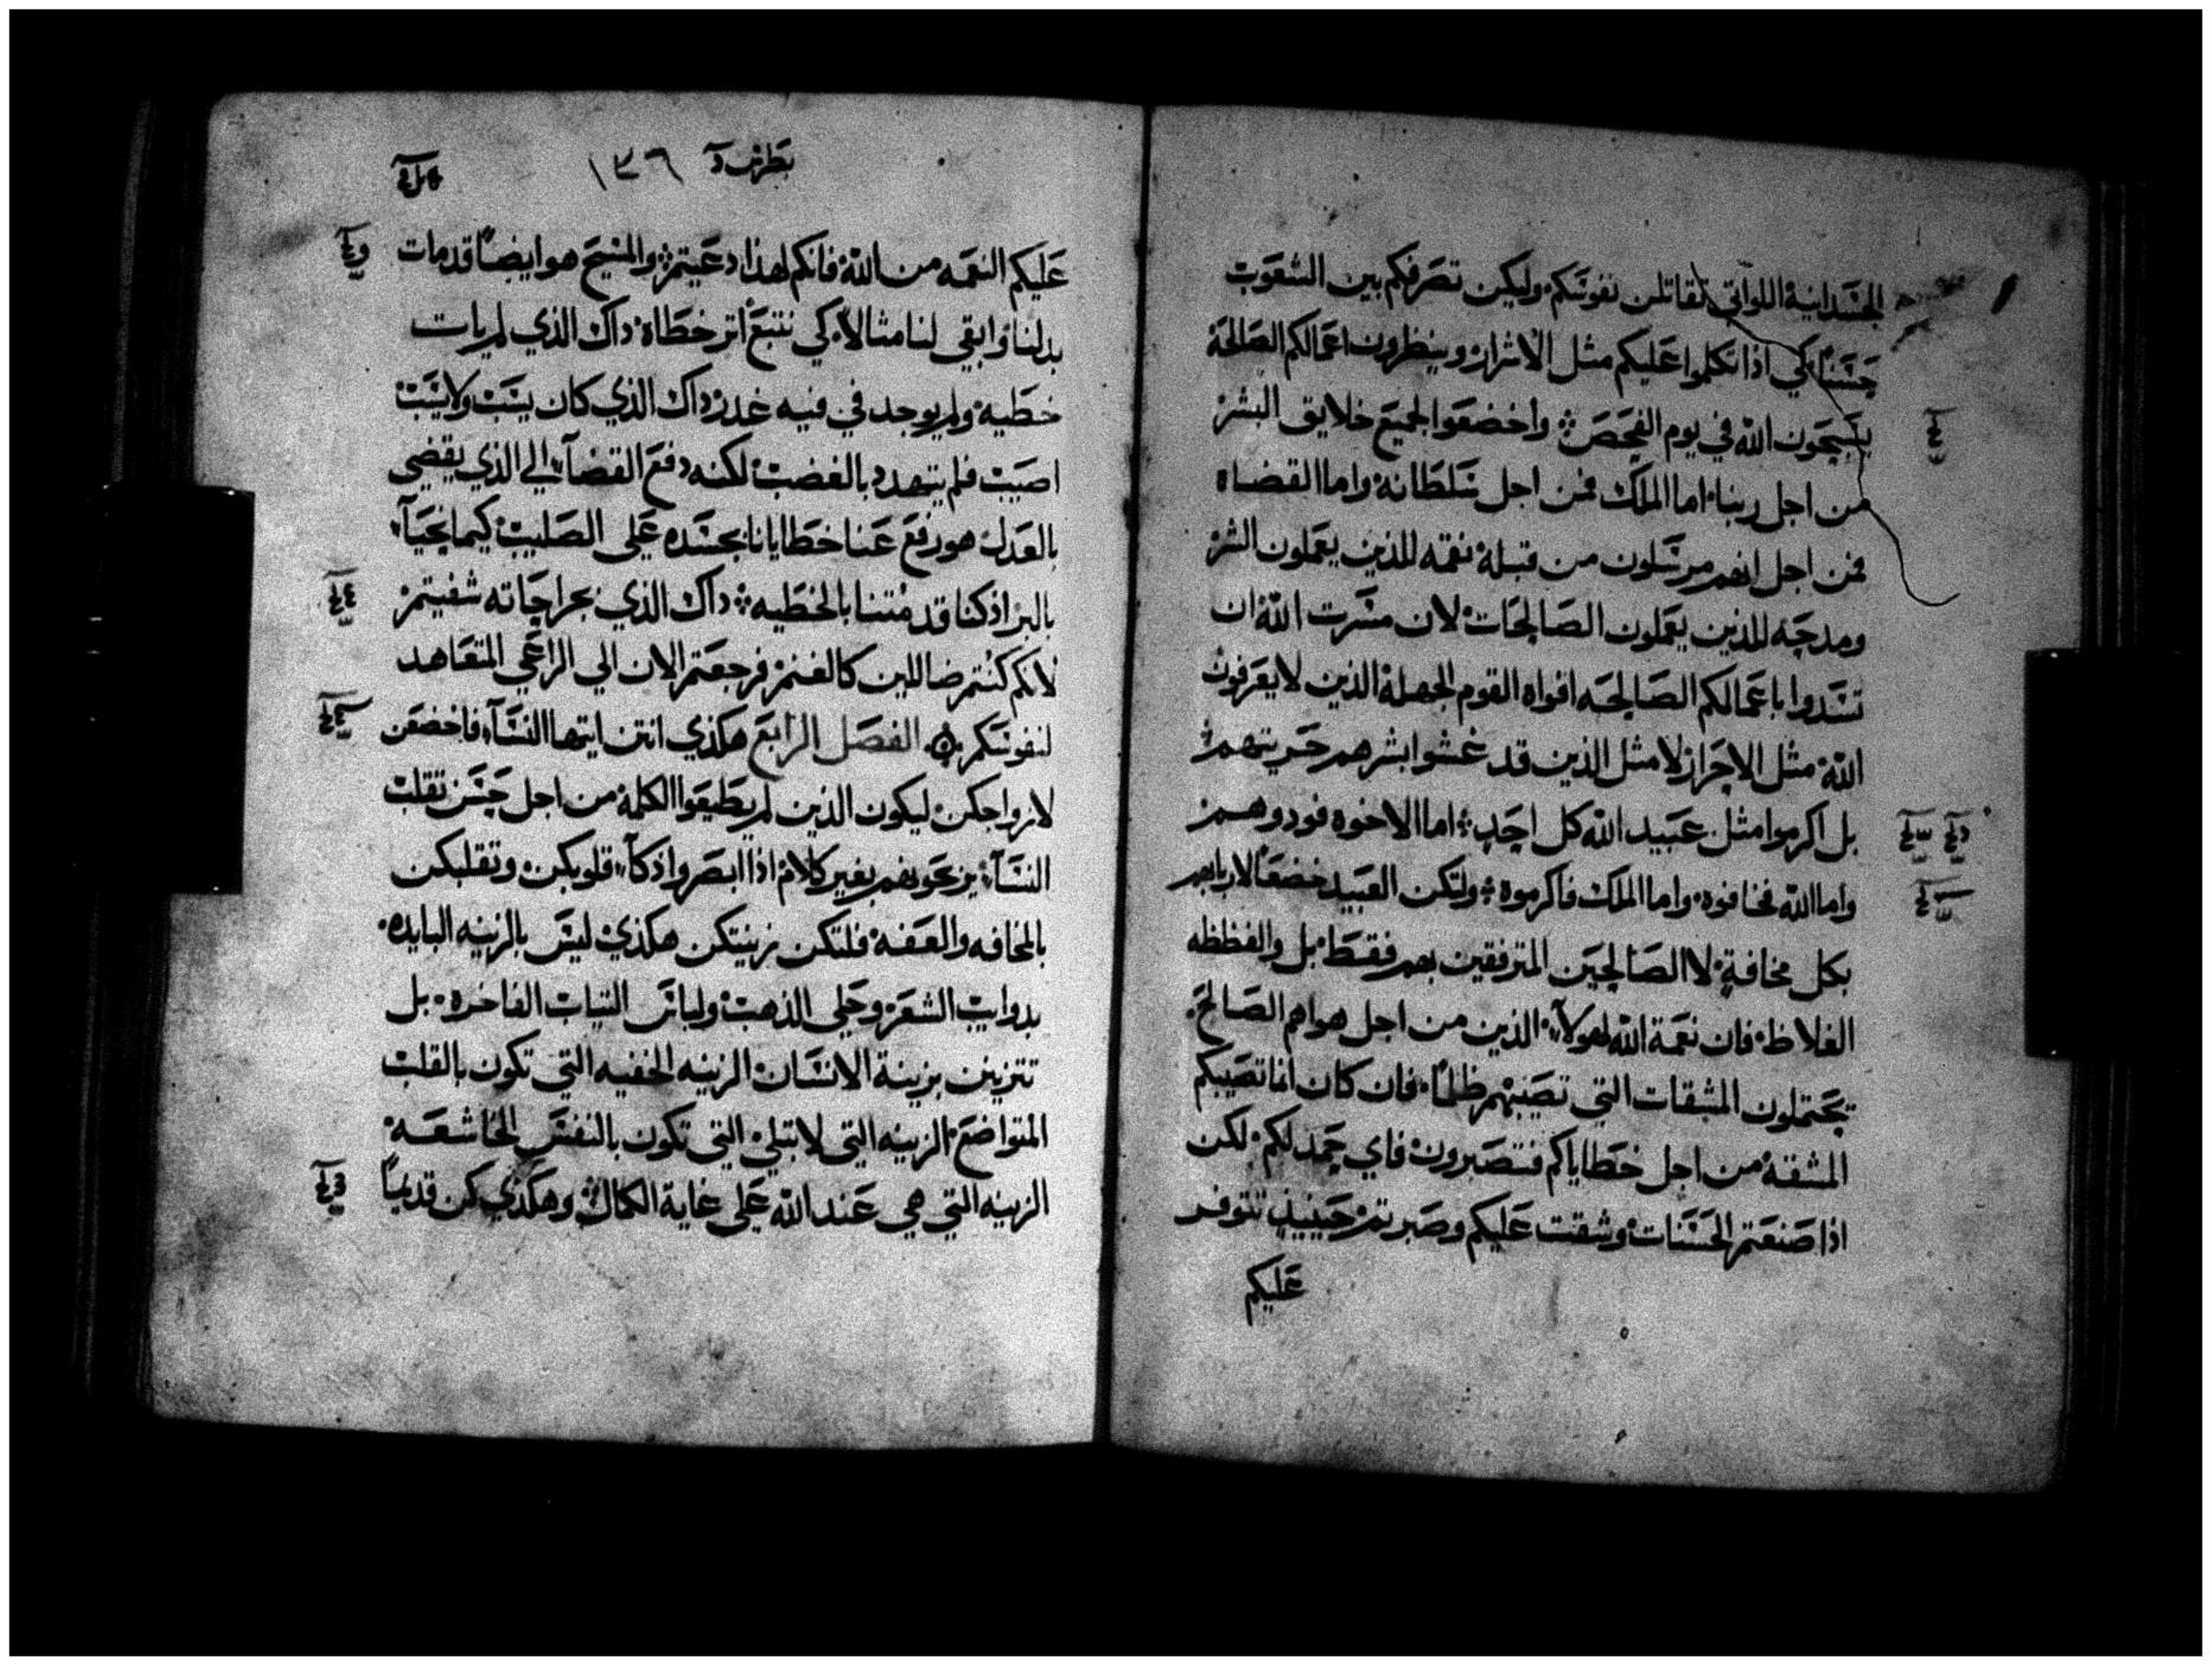 الجسدانية اللواتي تقاتلن نفوسكم. وليكن تصرفكم بين الشعوب
حسنًا كي اذا تكلموا عليكم مثل الاشرار وينظرون اعمالكم الصالحة
يسبحون الله في يوم الفحص وأخضعوا لجميع خلايق البشر
من اجل ربنا. اما الملك فمن اجل سلطانة واما القضاه
فمن اجل انهم مرسلون من قبلة نقمه للذين يعملون الشر
ومدحه للذين يعملون الصالحات لان مسرت الله ان
تسدوا باعمالكم الصالحه افواه القوم الجهلة الذين لا يعرفون
الله مثل الاحرار لا مثل الذين قد غشوا بشرهم حريتهم
بل اكرموا مثل عبيد الله كل احد اما الاخوه فودوهم
واما الله فخافوه واما الملك فاكرموه ولتكن العبيد خضعًا لاربابهم
بكل مخافةٍ لا الصالحين المترفقين بهم فقط بل والفظظه
الغلاظ فان نعمة الله لهولآء الذين من اجل هواهم الصالح
يحتملون المشقات التي تصيبهم ظلمًا فان كان انما تصيبكم
المشقة من اجل خطاياكم فتصبرون فاي حمد لكم لكن
اذا صنعتم الحسنات وشقت عليكم وصبرتم حينيذٍ تتوفر
عليكم
بطرس آ ١٣٦
عليكم النعمه من الله فانكم لهذا دعيتم والمسيح هو ايضًا قد مات
بدلنا وابقي لنا مثالاً كي نتبع أثر خطاه داك الذي لم يات
خطيه ولم يوجد في فيه غدر داك الذي كان يسب ولا يسب
اصيب فلم يتهدد بالغضب لكنه دفع القضآء الي الذي يقضي
بالعدل هو رفع عنا خطايانا بجسده على الصليب كيما نحيآ
بالبر اذ كنا قد متنا بالخطيه داك الذي بجراحاته شفيتم
لانكم كنتم ضاللين كالغنم فرجعتم الان الي الراعي المتعاهد
لنفوسكم الفصل الرابع هكذي انتن ايتها النسآء فاخضعن
لازواجكن ليكون الذين لم يطيعوا الكلمة من اجل حسن تقلب
النسآء يربحوهم بغير كلام اذا ابصروا ذكآء قلوبكن وتقلبكن
بالمخافه والعفة فلتكن زينتكن هكذي ليس بالزينه البايده
بدوايب الشعر وحلي الذهب ولباس التياب الفاخره بل
تتزين بزينة الانسان الزينه الخفيه التي تكون بالقلب
المتواضع الزينه التي لا تبلي التي تكون بالنفس الخاشعة
الزينه التي هي عند الله علي غاية الكمال وهكذي كن قديمًا